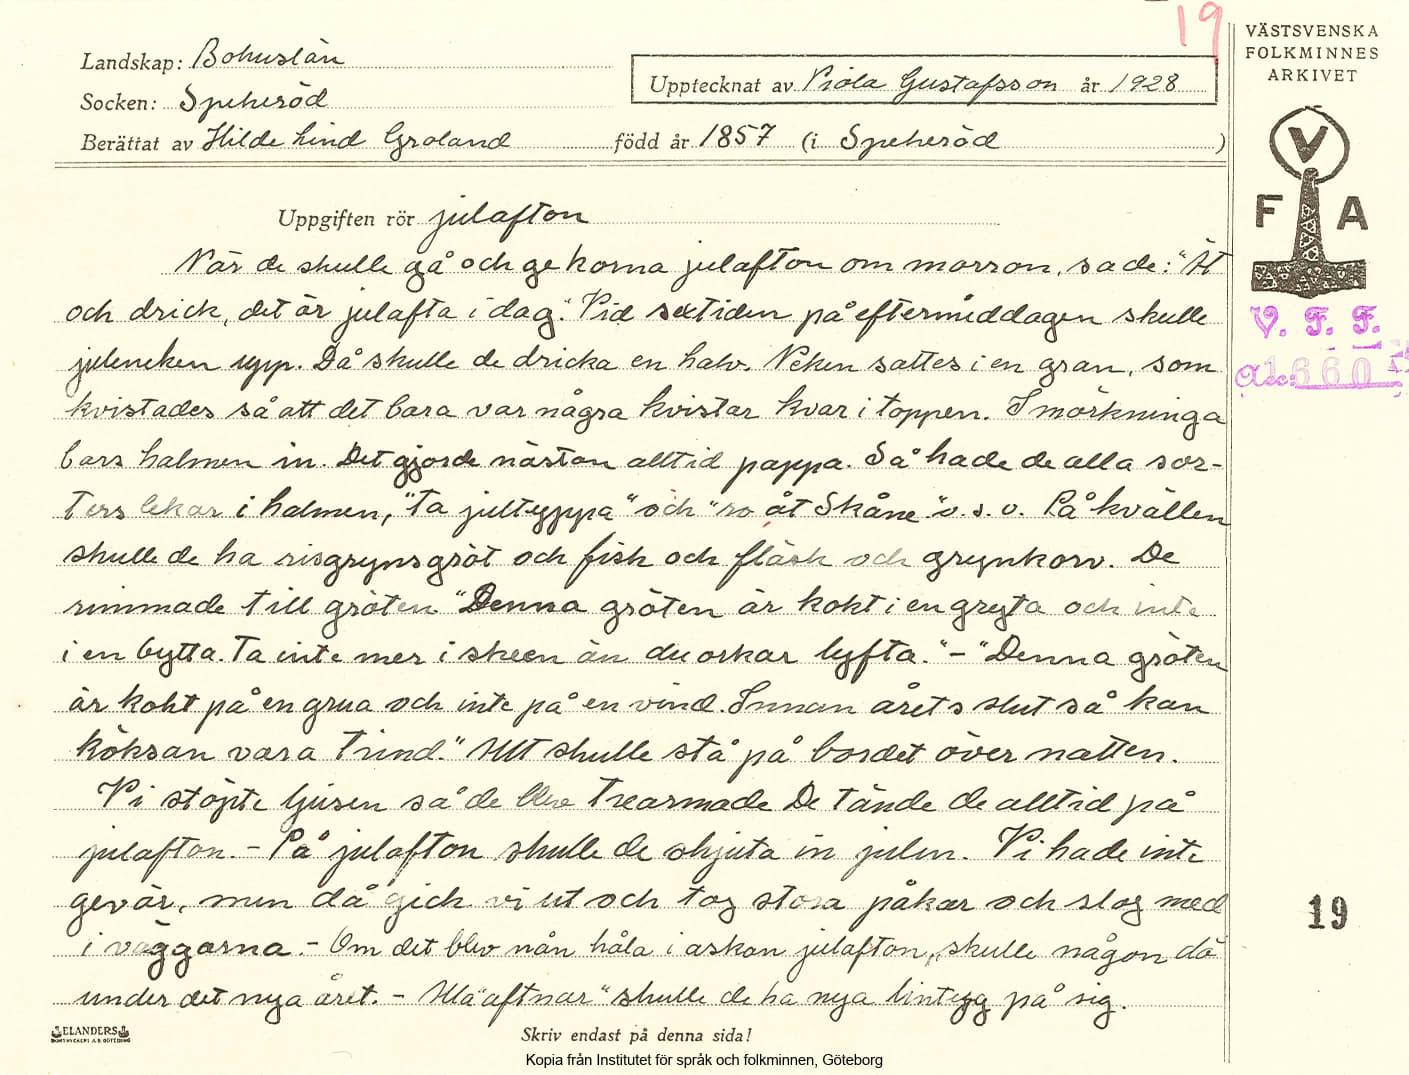 19
Landskap: Bohuslän
Socken: Spekeröd
Berättat av Hilde Lind Groland född år 1857 (i Spekeröd )
Upptecknat av Viola Gustafsson år 1928
VÄSTSVENSKA
FOLKMINNES
ARKIVET
V
F A
V. F. F.
Acc: 1660
Uppgiften rör julafton
När de skulle gå och ge korna julafton om morron, sa de: "Ät
och drick, det är julafta i dag." Vid sextiden på eftermiddagen skulle
juleneken upp. Då skulle de dricka en halv. Neken sattes i en gran, som
kvistades så att det bara var några kvistar kvar i toppen. I mörkninga
bars halmen in. Det gjorde nästan alltid pappa. Så hade de alla sor-
ters lekar i halmen, "ta jultuppa" och "ro åt Skåne" o. s. v. På kvällen
skulle de ha risgrynsgröt och fisk och fläsk och grynkorv. De
rimmade till gröten "Denna gröten är kokt i en gryta och inte
i en bytta. Ta inte mer i skeen än du orkar lyfta." – "Denna gröten
är kokt på en grua och inte på en vind. Innan årets slut så kan
köksan vara trind." Allt skulle stå på bordet över natten.
Vi stöpte ljusen så de blev trearmade De tände de alltid på
julafton. – På julafton skulle de skjuta in julen. Vi hade inte
gevär, men då gick vi ut och tog stora påkar och slog med
i väggarna. – Om det blev nån håla i askan julafton, skulle någon dö
under det nya året. – Alla "aftnar" skulle de ha nya lintyg på sig.
19
ELANDERS
BOKTRYCKERI A.B. GÖTEBORG
Skriv endast på denna sida!
Kopia från Institutet för språk och folkminnen, Göteborg